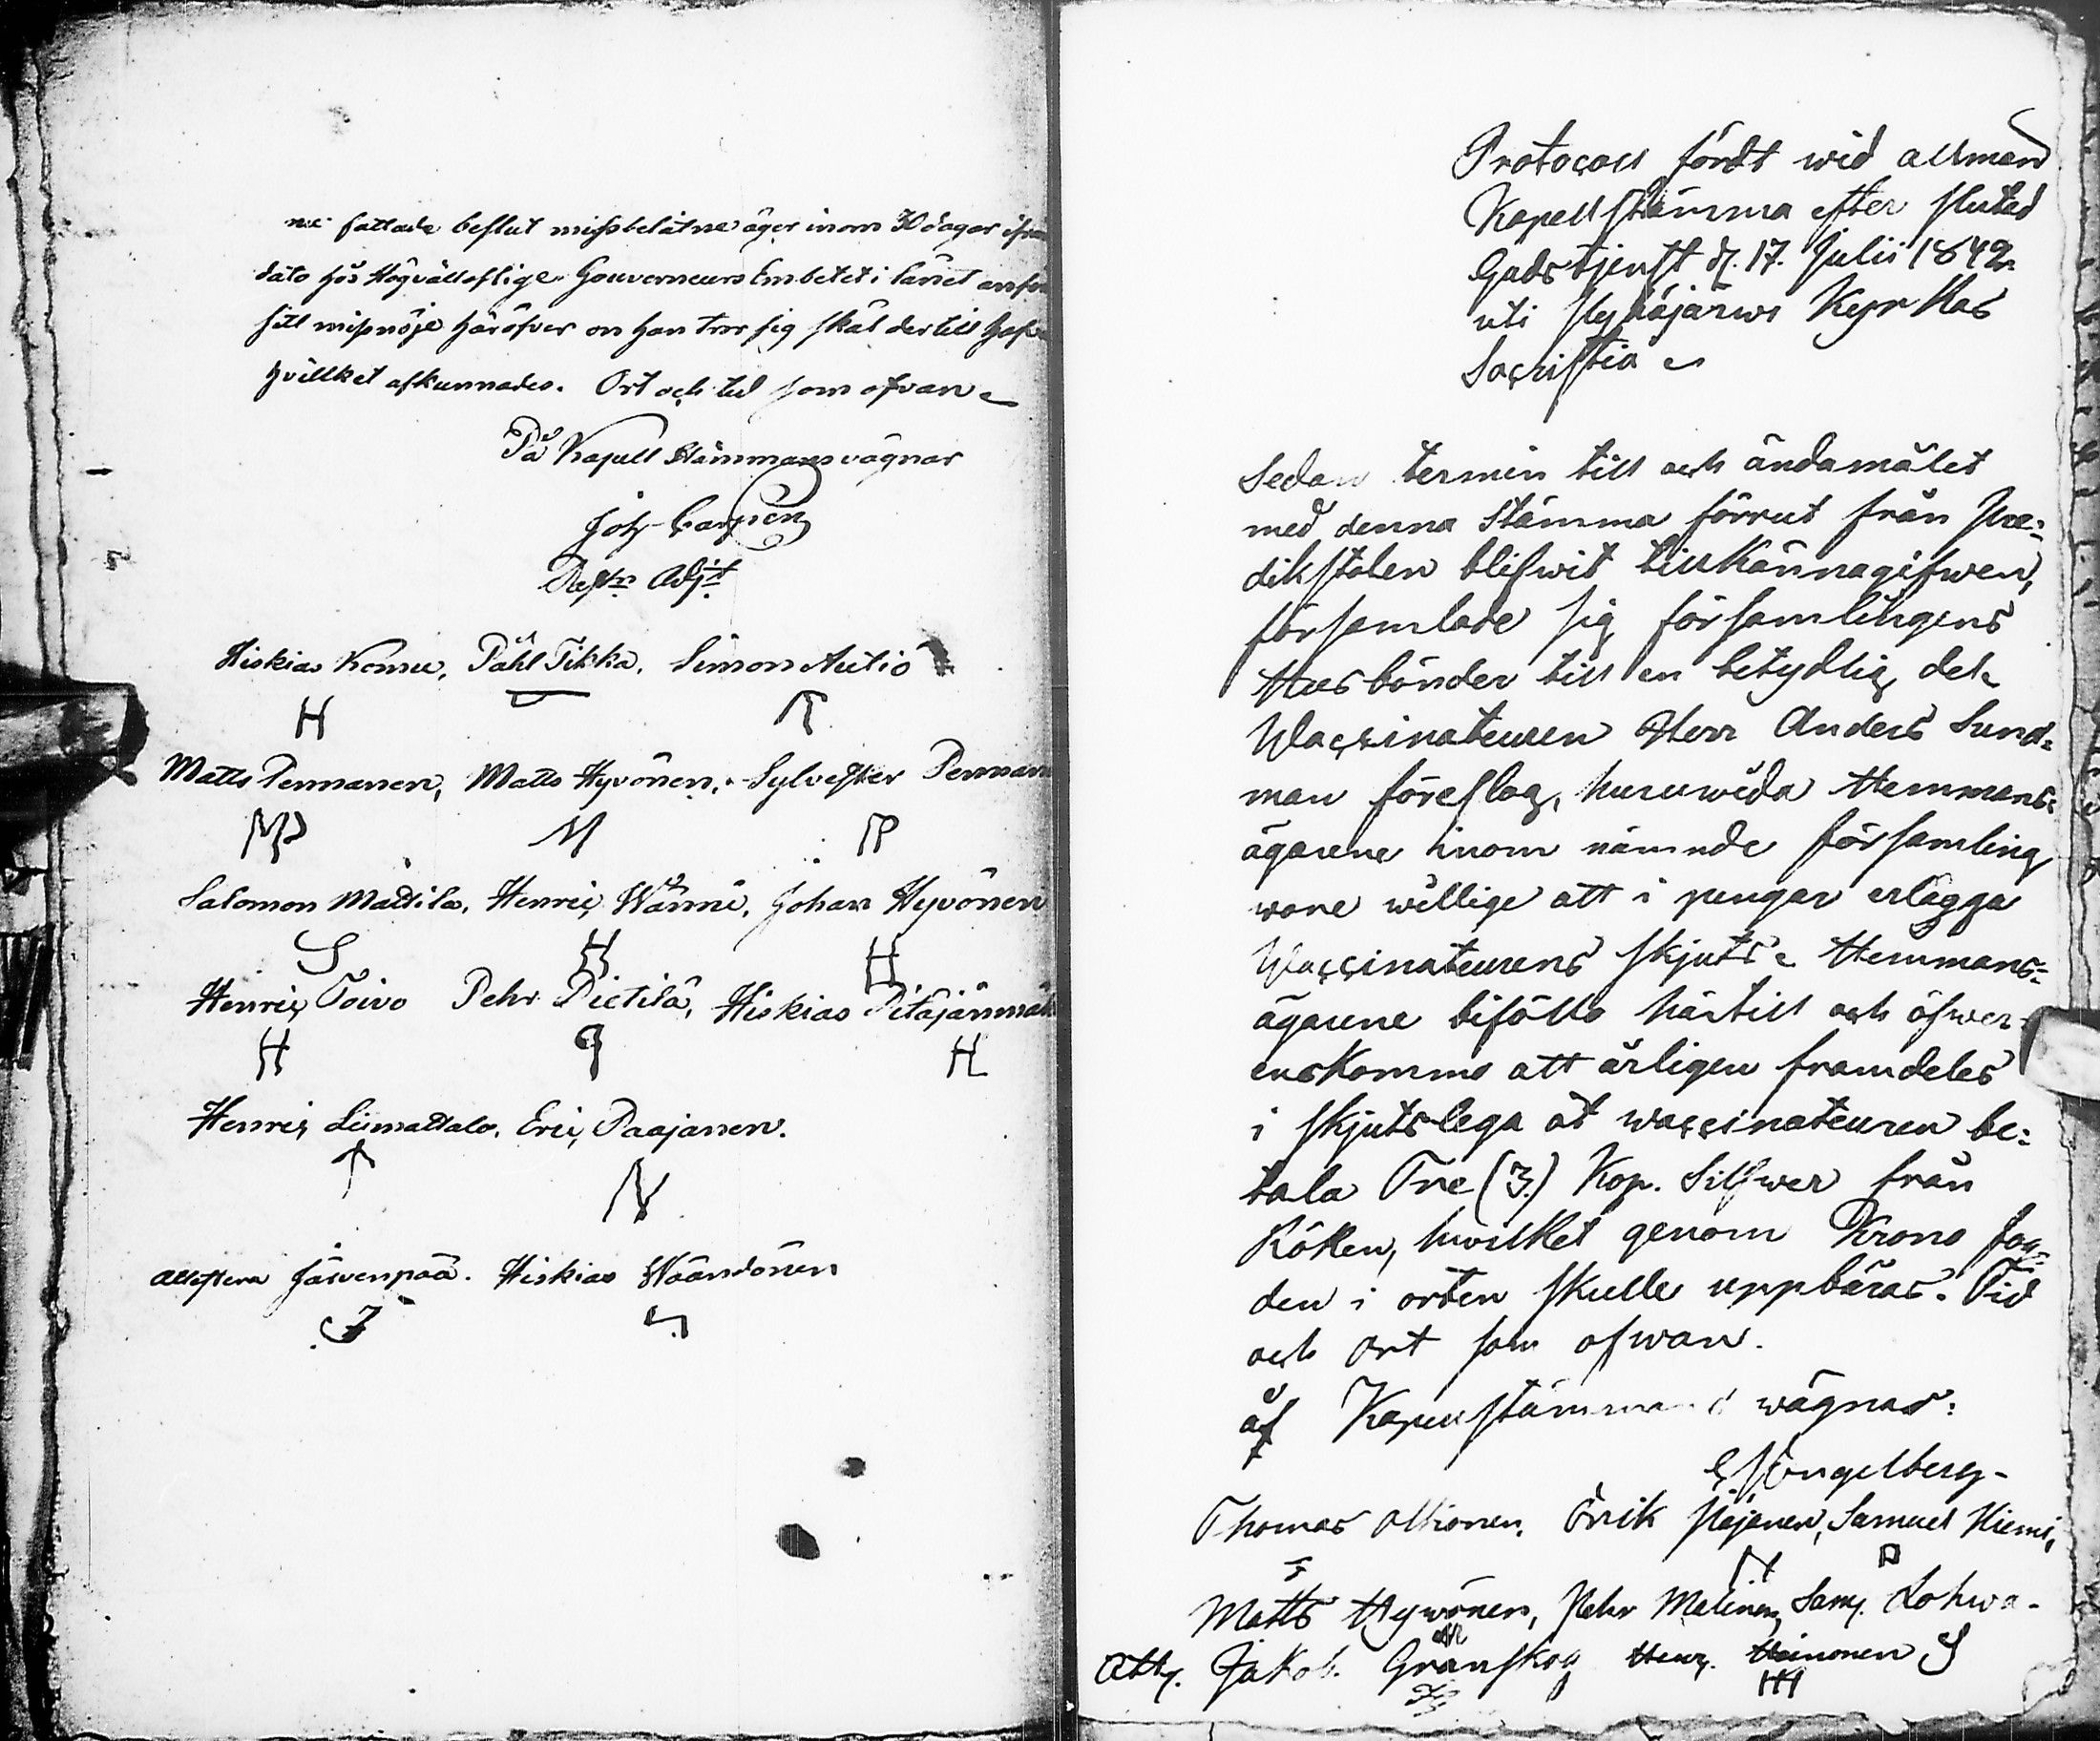 nu fattade beslut missbelåtne äger inom 30 dagar ifrån
dato hos Högvälloflige Gouverneurs Embetet i länet anföra
sitt missnöje häröfver om han tror sig skäl dertill hafva
hvilket afkunnades. Ort och tid som ofvan
På Kapell Stämmans vägnar
Joh. Carpén
Past: Adjt
Hiskias Komu, Påhl Tikka, Simon Autio
H
Matts Pennanen, Matts Hyvönen, Sylvester Pennanen
MP M P
Salomon Mattila, Henric Wänni, Johan Hyvönen
S H H
Henric Toivo Pehr Pietilä, Hiskias Pitäjänmäki
H H
Henric Liimattala, Eric Paajanen.
N
Attestera Järvenpää. Hiskias Wäändönen
Protocoll fördt wid allmän
Kapellstämma efter slutad
Gudstjenst d. 17. Julii 1842
uti Pyhäjärwi Kyrkas
Sacristia
Sedan termin till och ändamålet
med denna Stämma förrut från Pre=
dikstolen blifwit tillkännagifwen,
församlade sig församlingens
Husbönder till en betydlig del.
Waccinateuren Herr Anders Sund=
man föreslog, huruwida Hemmans=
ägarene inom nämnde församling
wore willige att i pengar erlägga
Waccinateurens skjuts. Hemmans=
ägarene biföllo härtill och öfwer=
enskommo att årligen framdeles
i skjutslega åt waccinateuren be=
tala Tre (3.) Kop. Silfwer från
Röken, hwilket genom Krono Fog=
den i orten skulle uppbäras. Tid
och Ort som ofwan.
På Kapellstämmans wägnar:
C J Engelberg
Thomas Ollionen. Erik Pajanen, Samuel Niemi,
Matts Hywönen, Pehr Malinen, Sam. Lohwa
M
Att. Jakob Granskog Henr. Heinonen S
JG HH